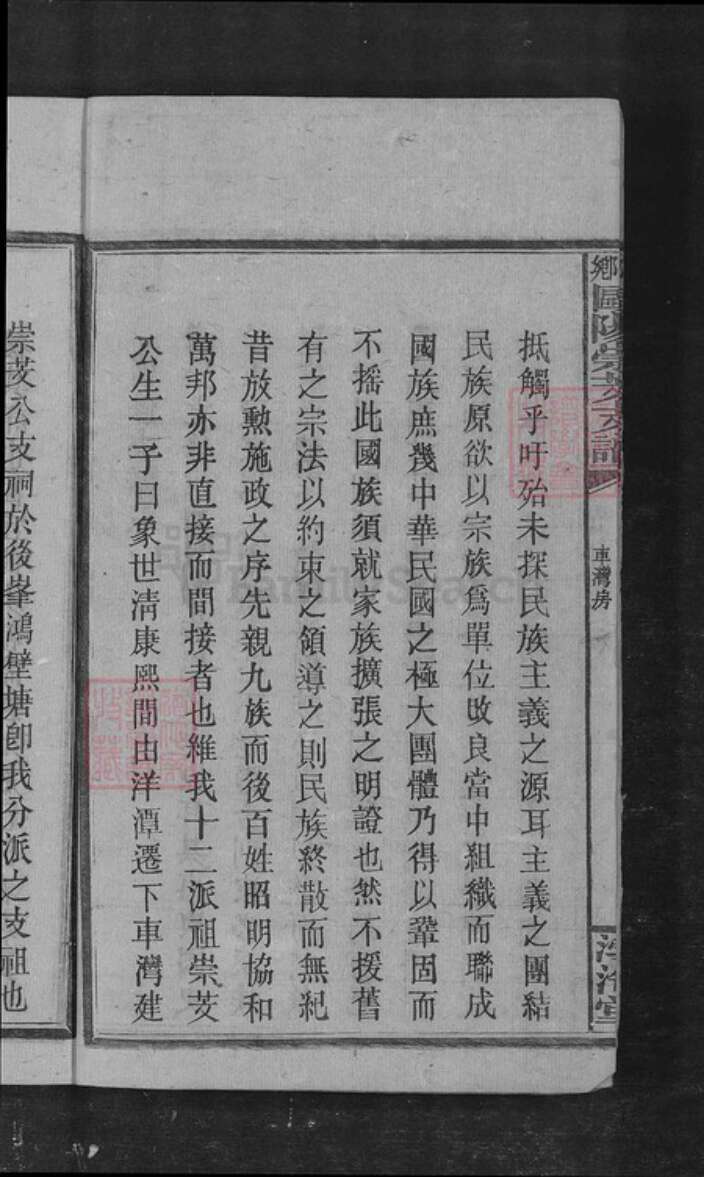 抵觸乎吁殆未探民族主義之源耳主義之團結
民族原欲以宗族爲單位改良當中組織而聯成
國族庶幾中華民國之極大團體乃得以鞏固而
不搖此國族須就家族擴張之明證也然不援舊
有之宗法以約束之領導之則民族終散而無紀
昔放勲施政之序先親九族而後百姓昭明協和
萬邦亦非直接而間接者也維我十二派祖崇芠
公生一子曰象世清康熙間由洋潭遷下車灣建
崇芠公支祠於後峯鴻壁塘卽我分派之支祖也
車灣房
FamilySearch